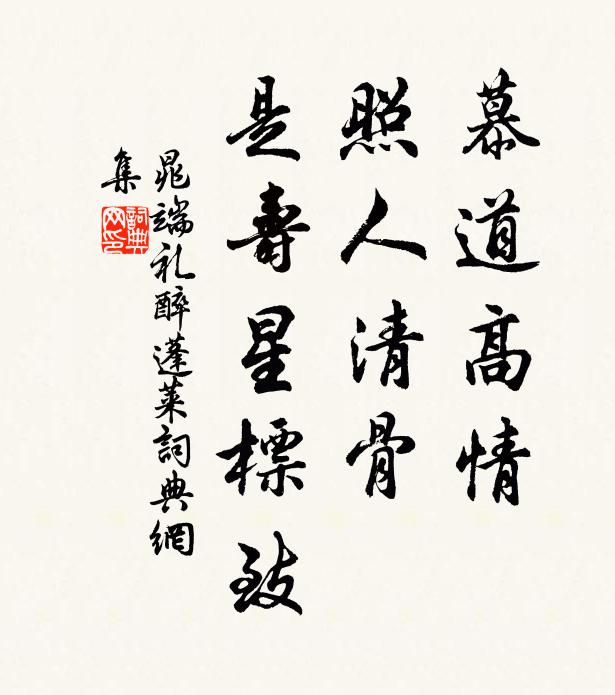 慕道高情
照人清骨
是壽星標致
晁端礼醉蓬萊詞典網
集
詞典
网印